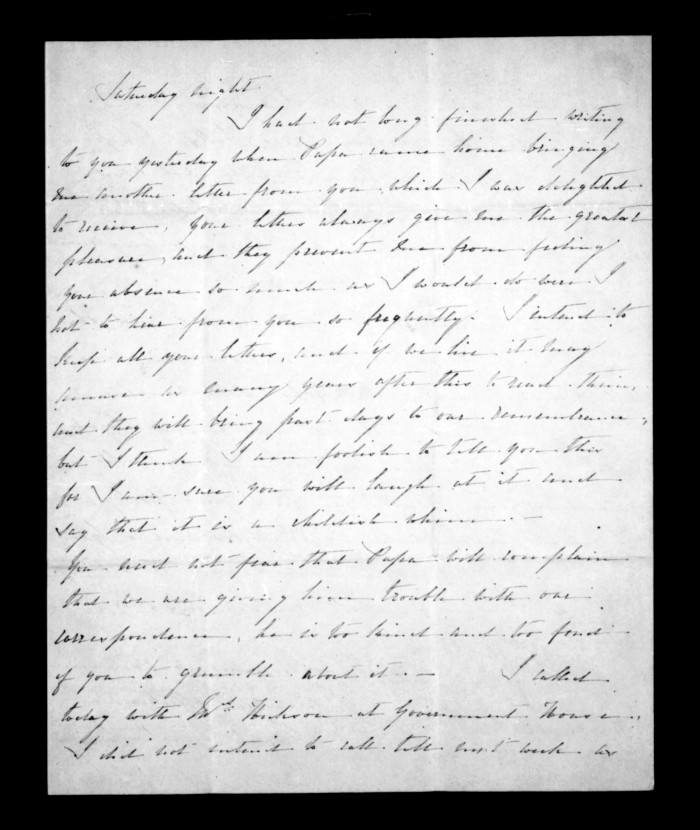 Saturday night
I had not long finished writing
to you yesterday when Papa came home bringing
me another letter from you which I was delighted
to receive, your letters always give me the greatest
pleasure, and they prevent me from feeling
your absence so much as I would do were I
not to hear from you so frequently. I intend to
keep all your letters, and if we live it may
amuse us many years after this to read them,
and they will bring past days to our remembrance,
but I think I am foolish to tell you this
for I am sure you will laugh at it and
say that it is a childish whim. —
You need not fear that Papa will complain
that we are giving him trouble with our
correspondence, he is too kind and too fond
of you to grumble about it. — I called
today with Mrs Hickson at Government House,
I did not intend to call till next week as